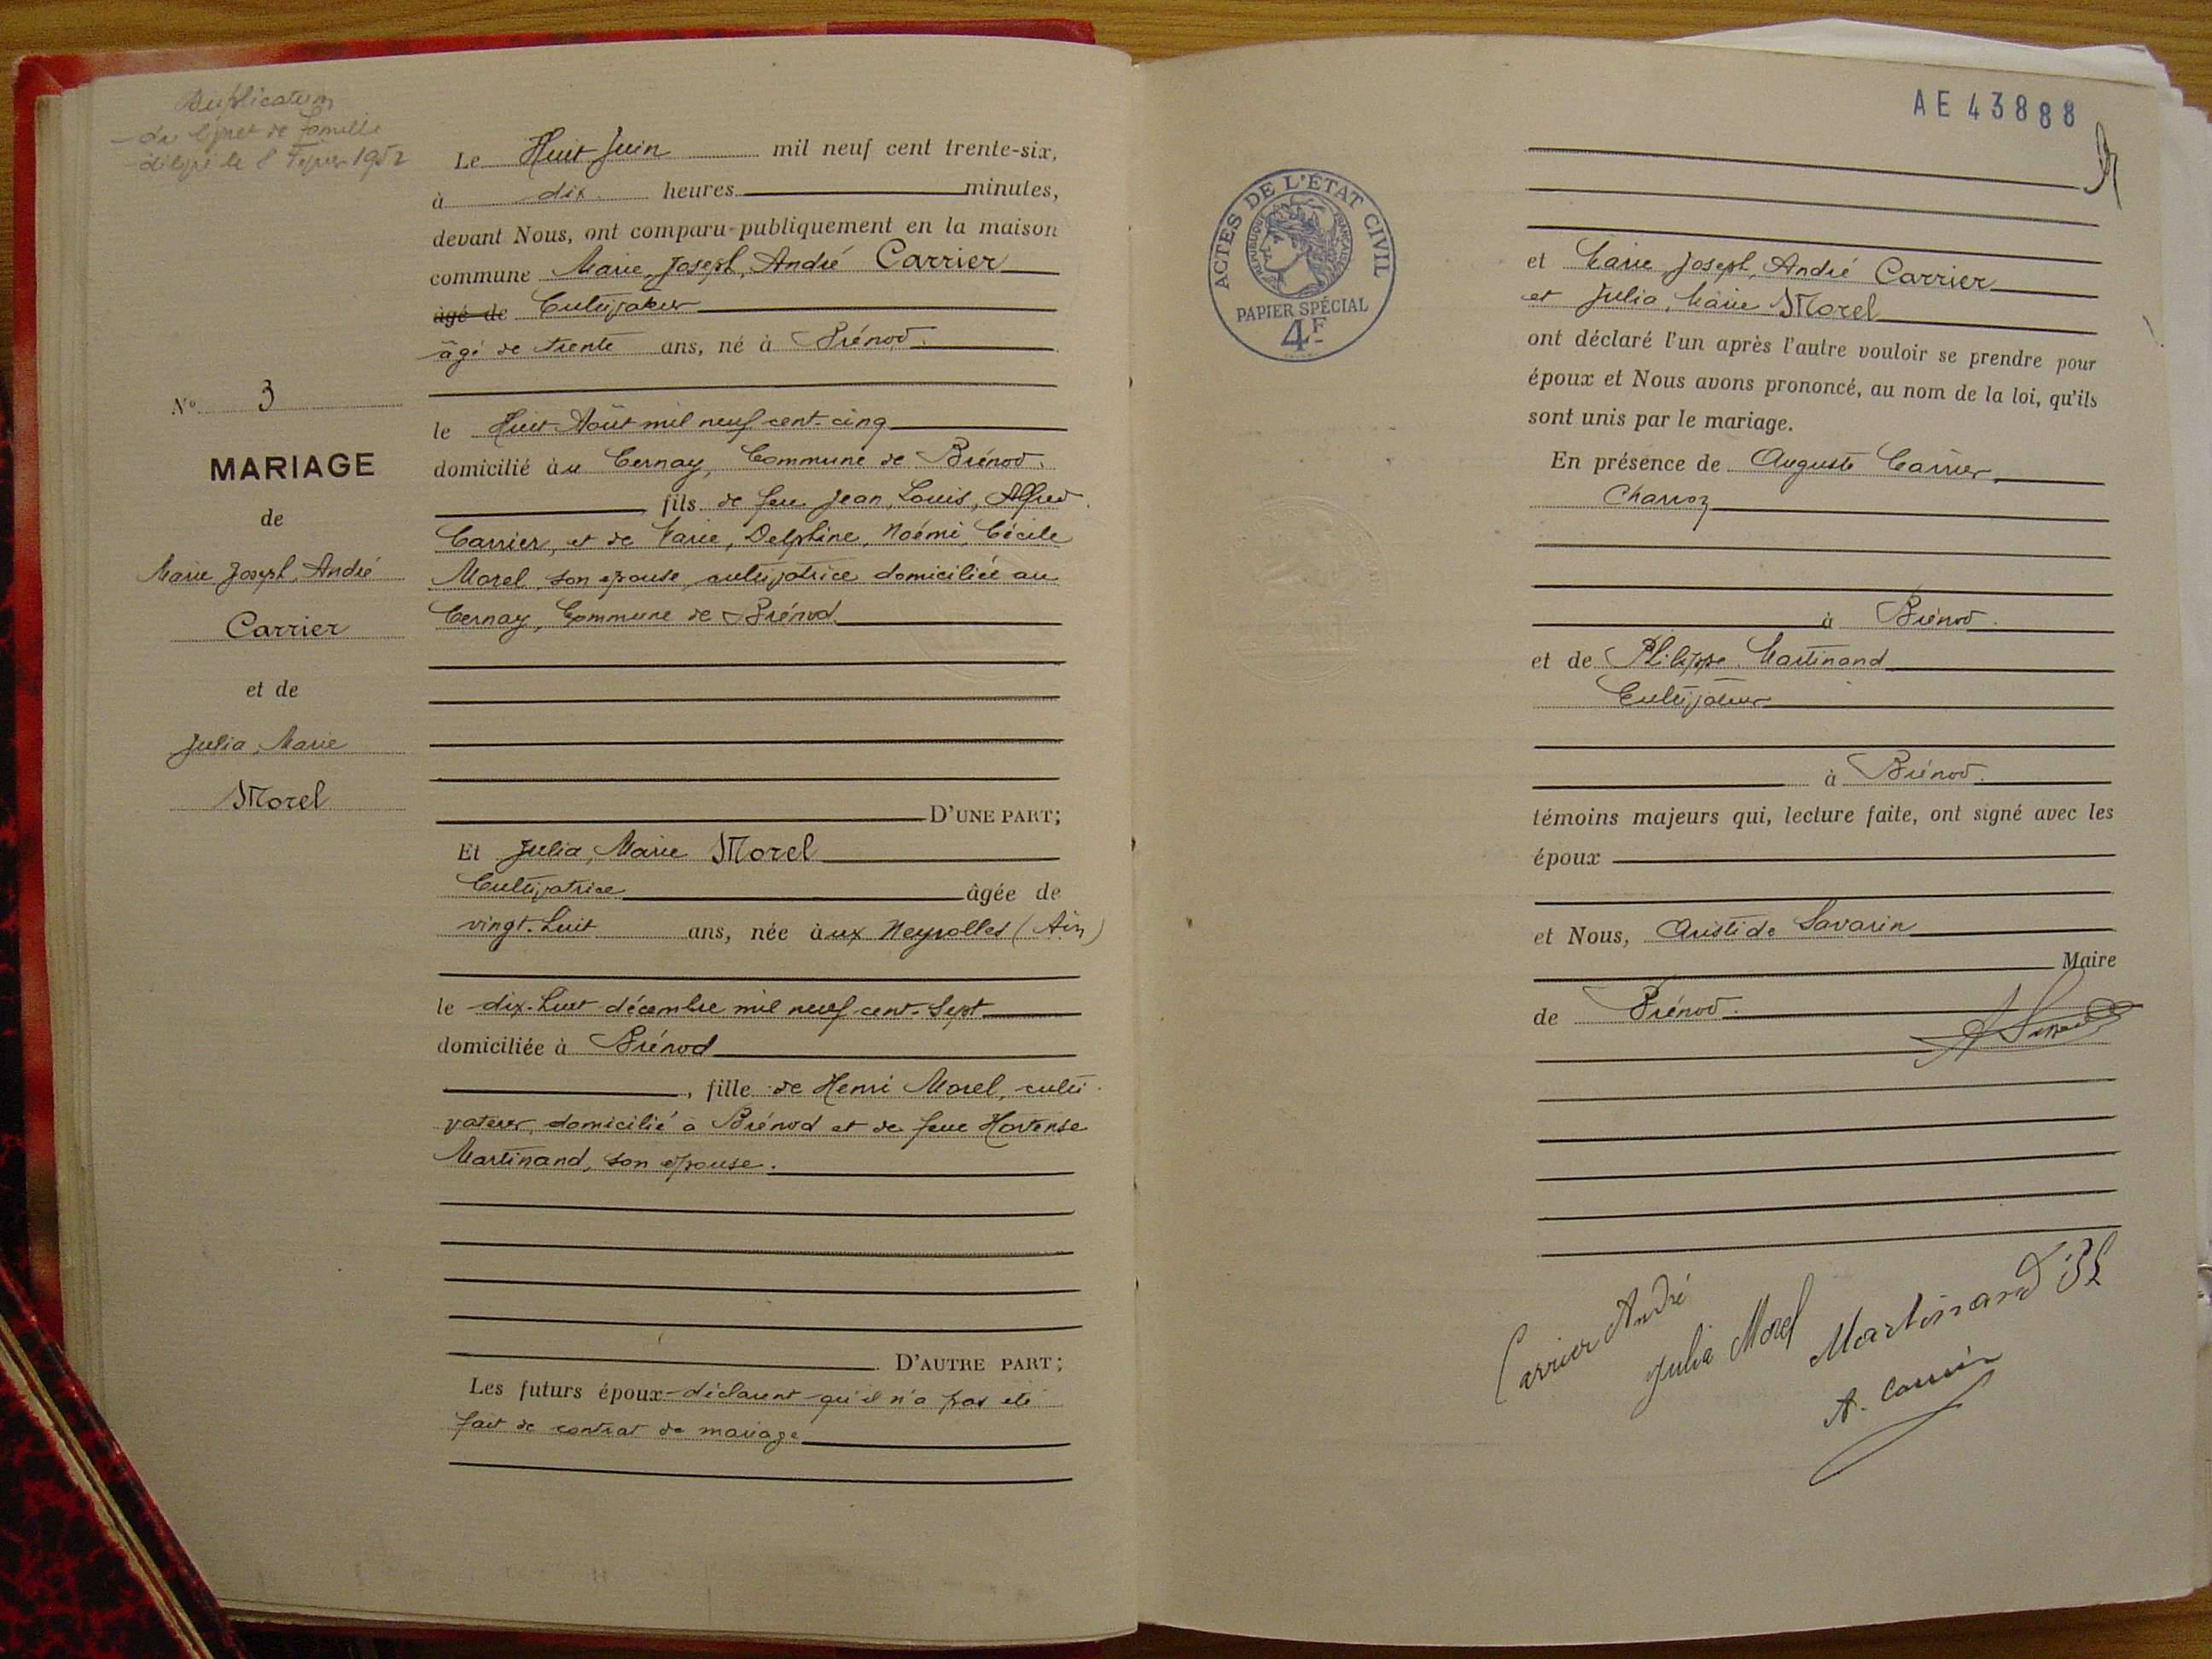 Duplicatum
du livret de famille
délivré le 8 Février 1952
N° 3
MARIAGE
de
Marie, Joseph, André
Carrier
et de
Julia, Marie
Morel
Le Huit Juin mil neuf cent trente-six,
à dix heures minutes,
devant Nous, ont comparu publiquement en la maison
commune Marie, Joseph, André Carrier
âgé de Cultivateur
âgé de trente ans, né à Brénod.
le Huit Août mil neuf cent-cinq
domicilié au Cernay, Commune de Brénod.
fils de feu Jean, Louis, Alfred
Carrier, et de Marie, Delphine, Noémi, Cécile
Morel, son épouse, cultivatrice domiciliée au
Cernay, Commune de Brénod.
D'UNE PART;
Et Julia, Marie Morel
Cultivatrice âgée de
vingt-huit ans, née aux Neyrolles (Ain)
le dix-huit décembre mil neuf-cent-sept
domiciliée à Brénod
, fille de Henri Morel, culti
vateur, domicilié à Brénod et de feue Hortense
Martinand, son épouse.
D'AUTRE PART;
Les futurs époux déclarent qu'il n'a pas été
fait de contrat de mariage
AE 43888
ACTES DE L'ÉTAT CIVIL
RÉPUBLIQUE FRANÇAISE
PAPIER SPÉCIAL
4F
et Marie, Joseph, André Carrier
et Julia, Marie Morel
ont déclaré l'un après l'autre vouloir se prendre pour
époux et Nous avons prononcé, au nom de la loi, qu'ils
sont unis par le mariage.
En présence de Auguste Carrier,
Charron
à Brénod.
et de Philippe Martinand
Cultivateur
à Brénod.
témoins majeurs qui, lecture faite, ont signé avec les
époux
et Nous, Aristide Savarin
Maire
de Brénod.
Carrier André
Julia Morel
Martinand
A. Carrier